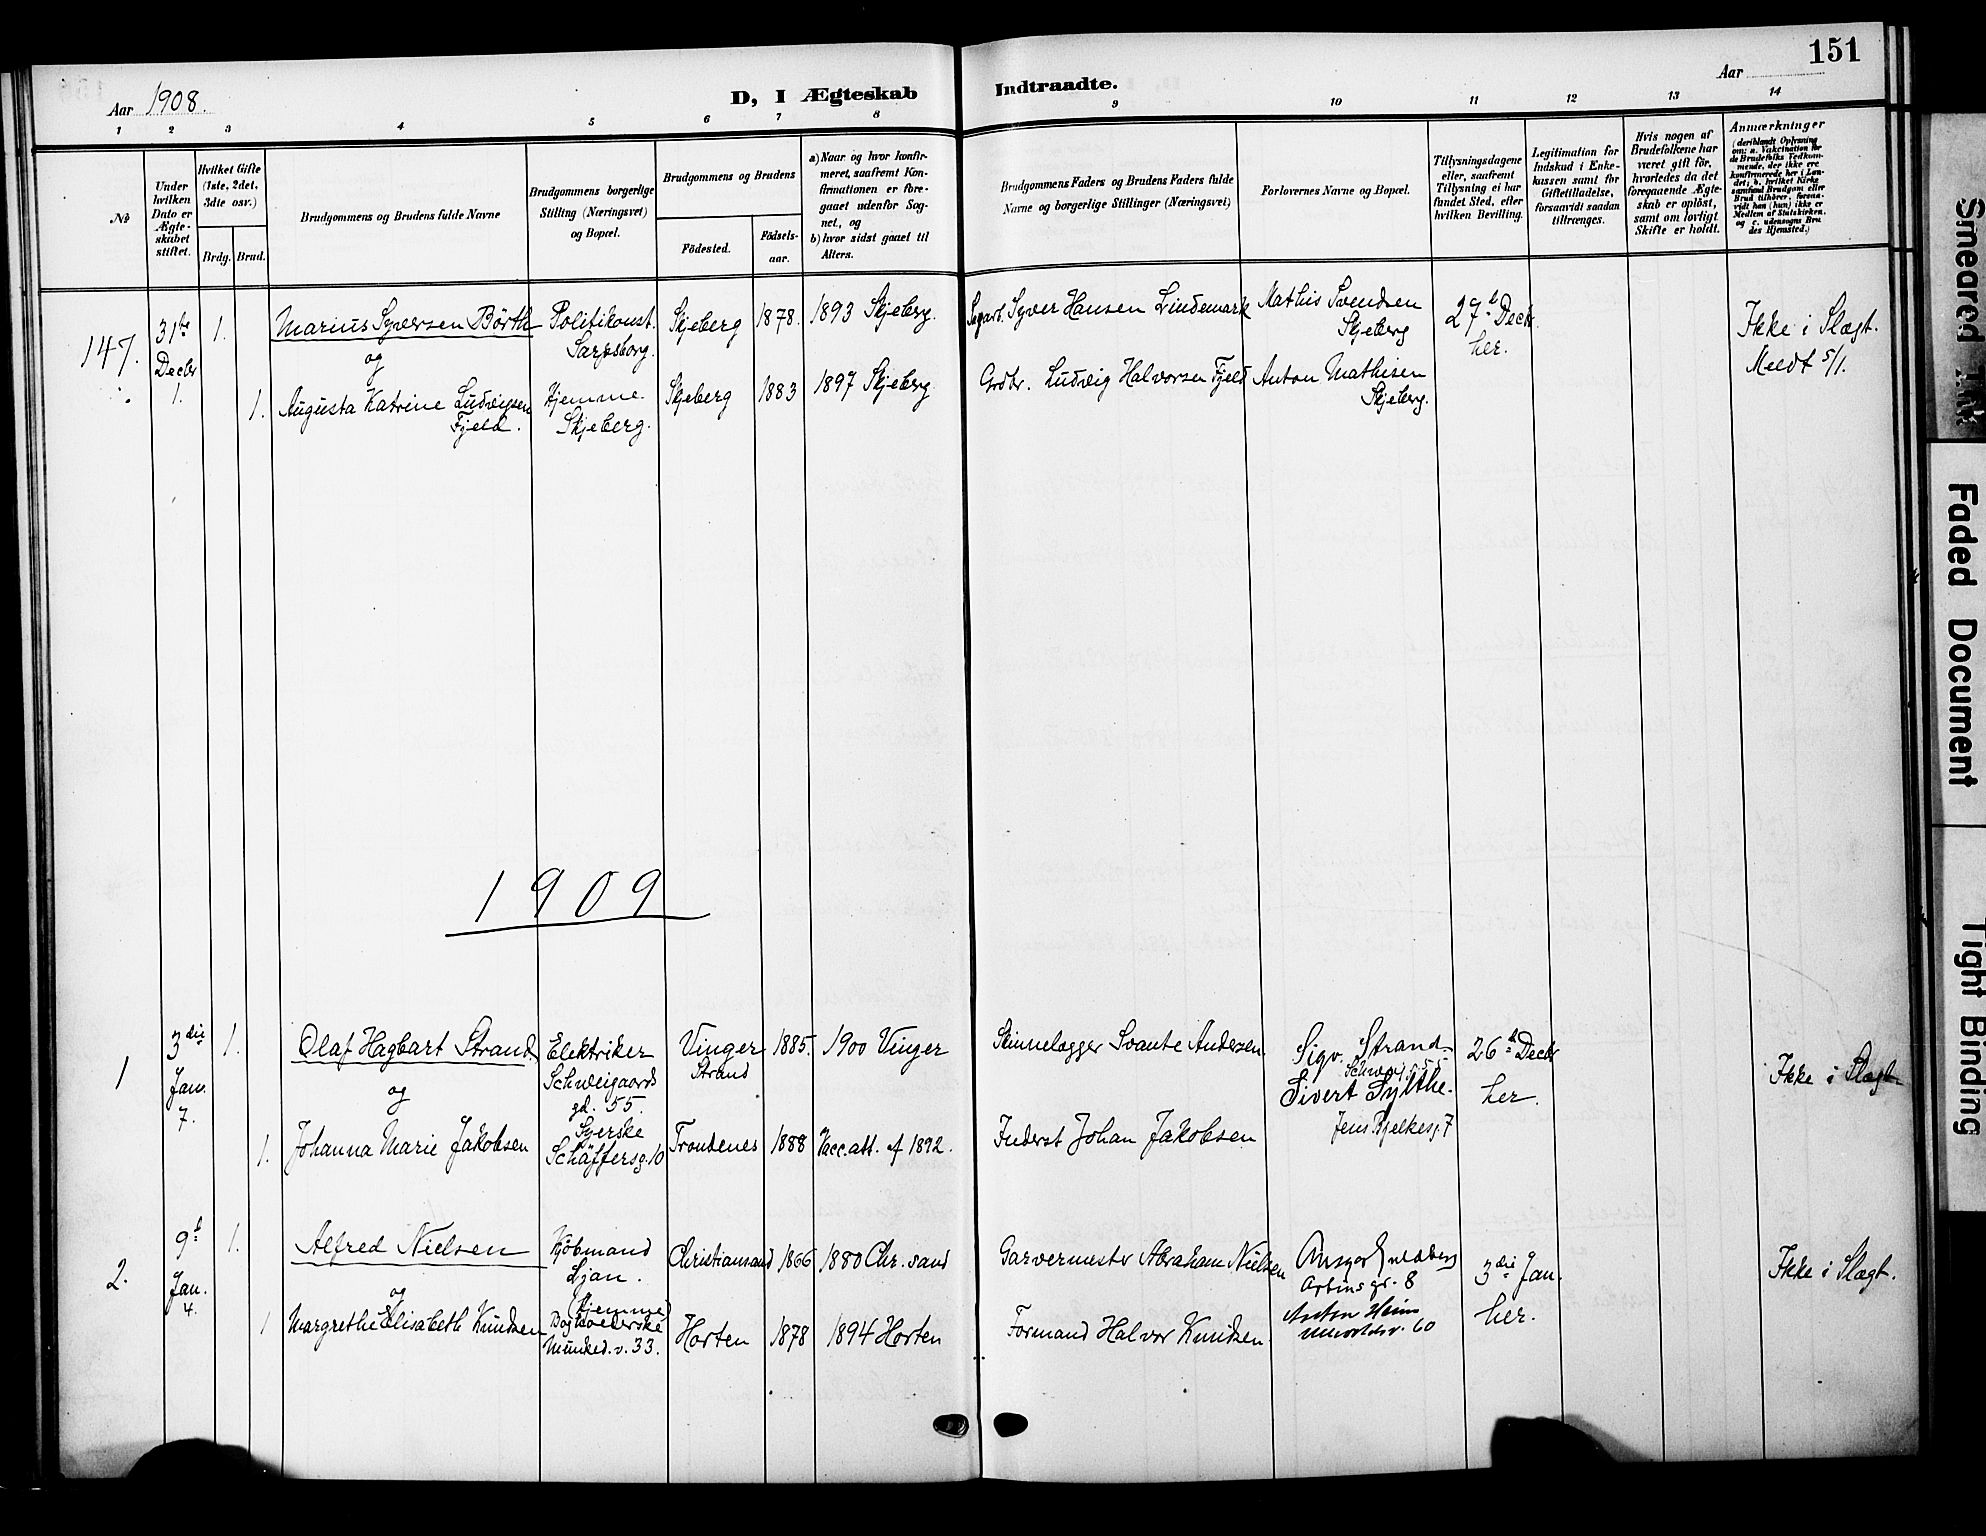 151
Aar 1908.
D, I Ægteskab Indtraadte.
Aar
1 2 3 4 5 6 7 8 9 10 11 12 13 14
No
Under hvilken Dato er Ægteskabet stiftet.
Hvilket Gifte (1ste, 2det, 3die osv.)
Brdg. Brud.
Brudgommens og Brudens fulde Navne
Brudgommens borgerlige Stilling (Næringsvei) og Bopæl.
Brudgommens og Brudens
Födested.
Födselsaar.
a) Naar og hvor konfirmeret, saafremt Konfirmationen er foregaaet udenfor Sognet, og
b) hvor sidst gaaet til Alters.
Brudgommens Faders og Brudens Faders fulde Navne og borgerlige Stillinger (Næringsvei)
Forlovernes Navne og Bopæl.
Tillysningsdagene eller, saafremt Tillysning ei har fundet Sted, efter hvilken Bevilling.
Legitimation for Indskud i Enkekassen samt for Giftetilladelse, forsaavidt saadan tiltrænges.
Hvis nogen af Brudefolkene har været gift för, hvorledes da det foregaaende Ægteskab er oplöst, samt om lovligt Skifte er holdt.
Anmærkninger
(deriblandt Oplysning om: a. Vakcination for de Brudefolks Vedkommende, der ikke ere konfirmerede her i Landet; b. hvilket Kirkesamfund Brudgom eller Brud tilhörer, forsaavidt han (hun) ikke er Medlem af Statskirken, og c. udensogns Brudes Hjemsted.)
147.
31te
Decbr
1.
1. Marius Syversen Börth
og
1. Augusta Katrine Ludvigsen
Fjeld.
Politikonst.
Sarpsborg.
Hjemme
Skjeberg.
Skjeberg 1878. 1893 Skjeberg.
Skjeberg 1883 1897 Skjeberg
Syver Hansen Lindemark
Grdbr. Ludvig Halvorsen Fjeld
Mathis Svendsen
Skjeberg
Anton Mathisen
Skjeberg.
27d Decbr
her.
Ikke i Slægt.
Meldt 5/1.
1909
1
3die
Jan.
7.
1. Olaf Hagbart Strand
og
1. Johanna Marie Jakobsen
Elektriker
Schweigaards
gd. 55.
Syerske
Schäffersg. 10
Vinger
Strand
1885. 1900 Vinger
Trondenes 1888 Vacc.att. af 1892.
Skinnelægger Svante Andersen.
Inderst Johan Jakobsen
Sigv. Strand
Schweig. g. 55
Sivert Sylthe.
Jens Bjelkesg. 7
26d Decbr
her.
Ikke i Slægt
2.
9d
Jan.
4.
1. Alfred Nielsen
og
1 Margrethe Elisabeth Knudsen
Kjöbmand
Ljan.
(Hjemme)
Bogholderske
Munked. v. 33.
Christiansand 1866 1880 Chr.sand
Horten 1878 1894 Horten
Garvermester Abraham Nielsen
Formand Halvor Knudsen.
Ansgar Guldberg
Arbins gt. 8
Anton Heim
60
3die Jan.
her.
Ikke i Slægt.
Smeared Ink
Faded Document
Tight Binding